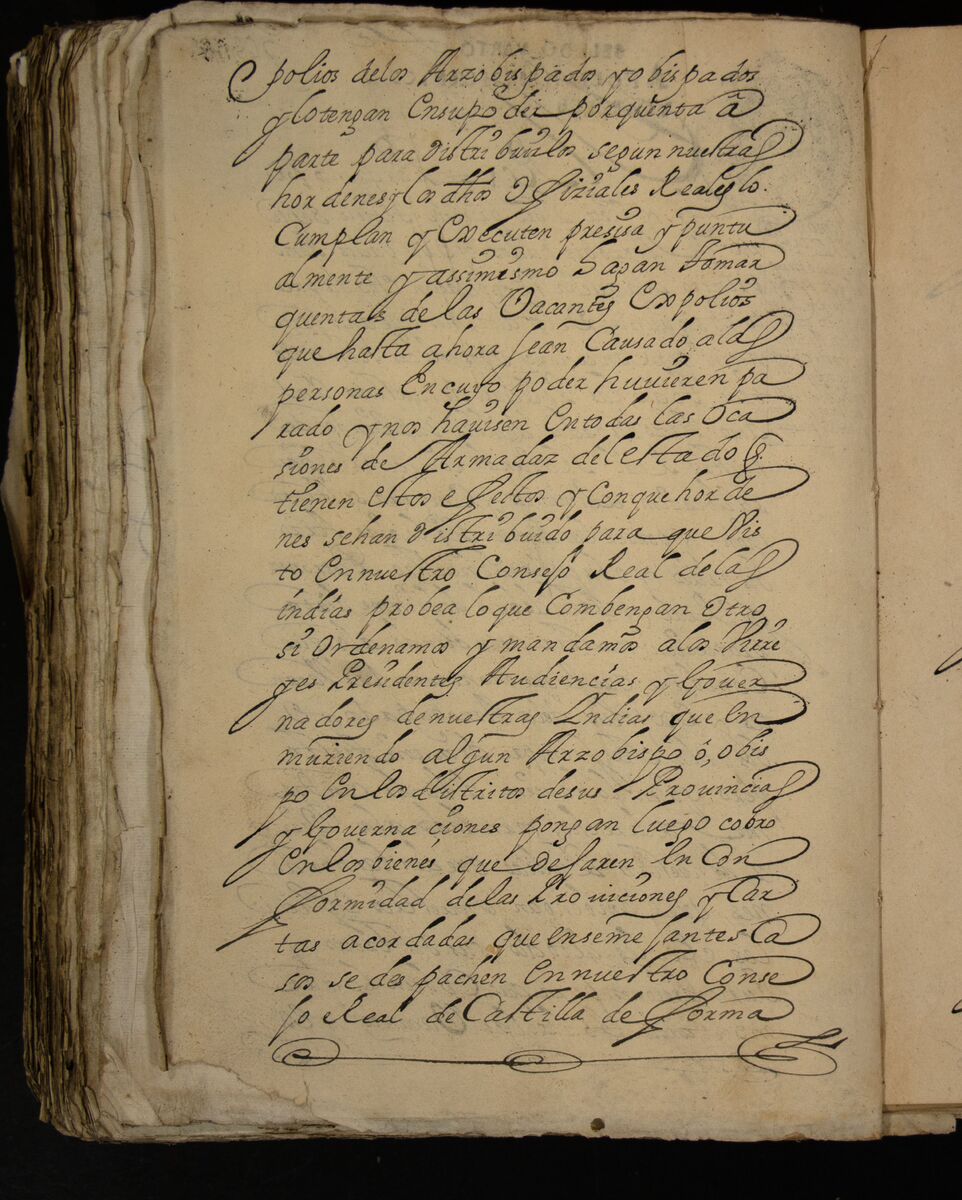 spolios delos Arzobispados y obispados
y lo tengan Ensupoder por quenta a
parte para distribuirlos segun nuestras
hordenes y los dhos Ofiziales Reales lo
Cumplan y Executen presisa y puntu
almente y assimismo hagan tomar
quentas de las Vacantes Expolios
que hasta ahora sean Causado alas
personas En cuyo poder huuieren pa
rado y nos hauisen En todas las Oca
siones de Armadaz del estado q.
tienen estos efectos y Con que horde
nes sehan distribuido para que Vis
to En nuestro Consejo Real delas
indias probea lo que Combengan Otro
si Ordenamos y mandamos alos Virre
yes Presidentes Audiencias y Gouer
nadores denuestras Indias que En
muriendo algun Arzobispo ó, obis
po En los distritos desus Provincias
y Governaciones pongan luego cobro
En los bienes que dejaren En Con
formidad de las Prouiciones y Car
tas acordadas que ensemejantes Ca
sos se despachen En nuestro Conse
jo Real de Castilla de forma